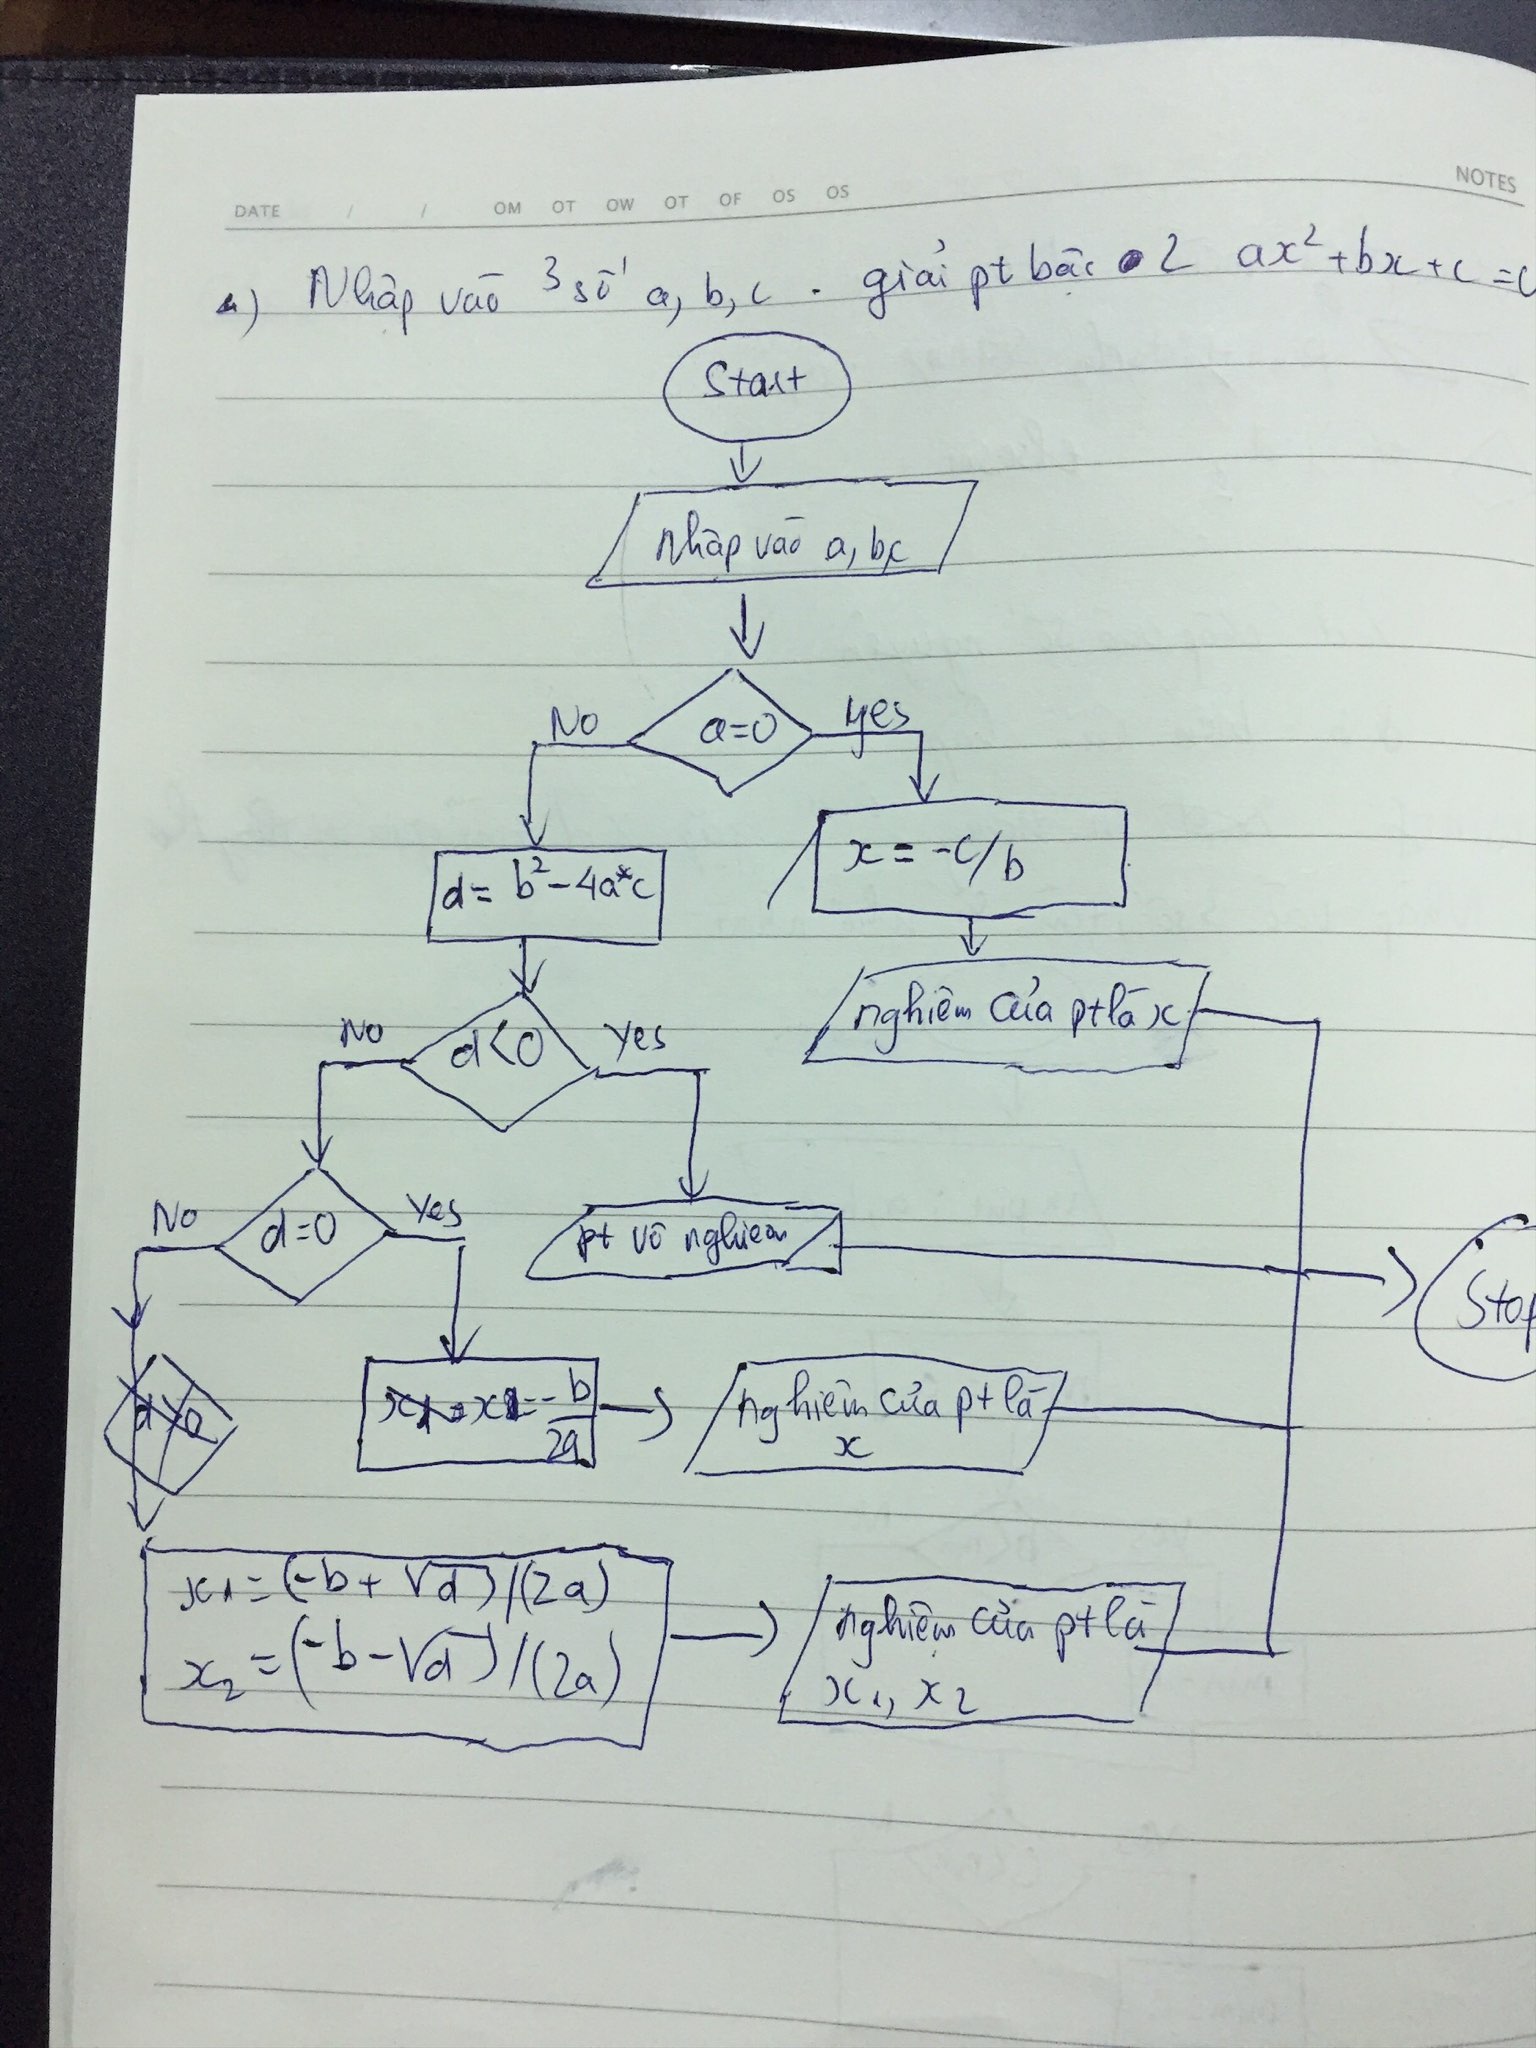 DATE / / OM OT OW OT OF OS OS
NOTES
a) Nhập vào 3 số a, b, c . giải pt bậc 2 ax²+bx+c=0
Start
Nhập vào a, b, c
No a=0 yes
d= b²-4a*c
x = -c/b
nghiệm của pt là x
No d<0 yes
No d=0 Yes
pt vô nghiệm
Stop
x = -b/2a
nghiệm của pt là
x
x1=(-b+√d)/(2a)
x2=(-b-√d)/(2a)
nghiệm của pt là
x1, x2